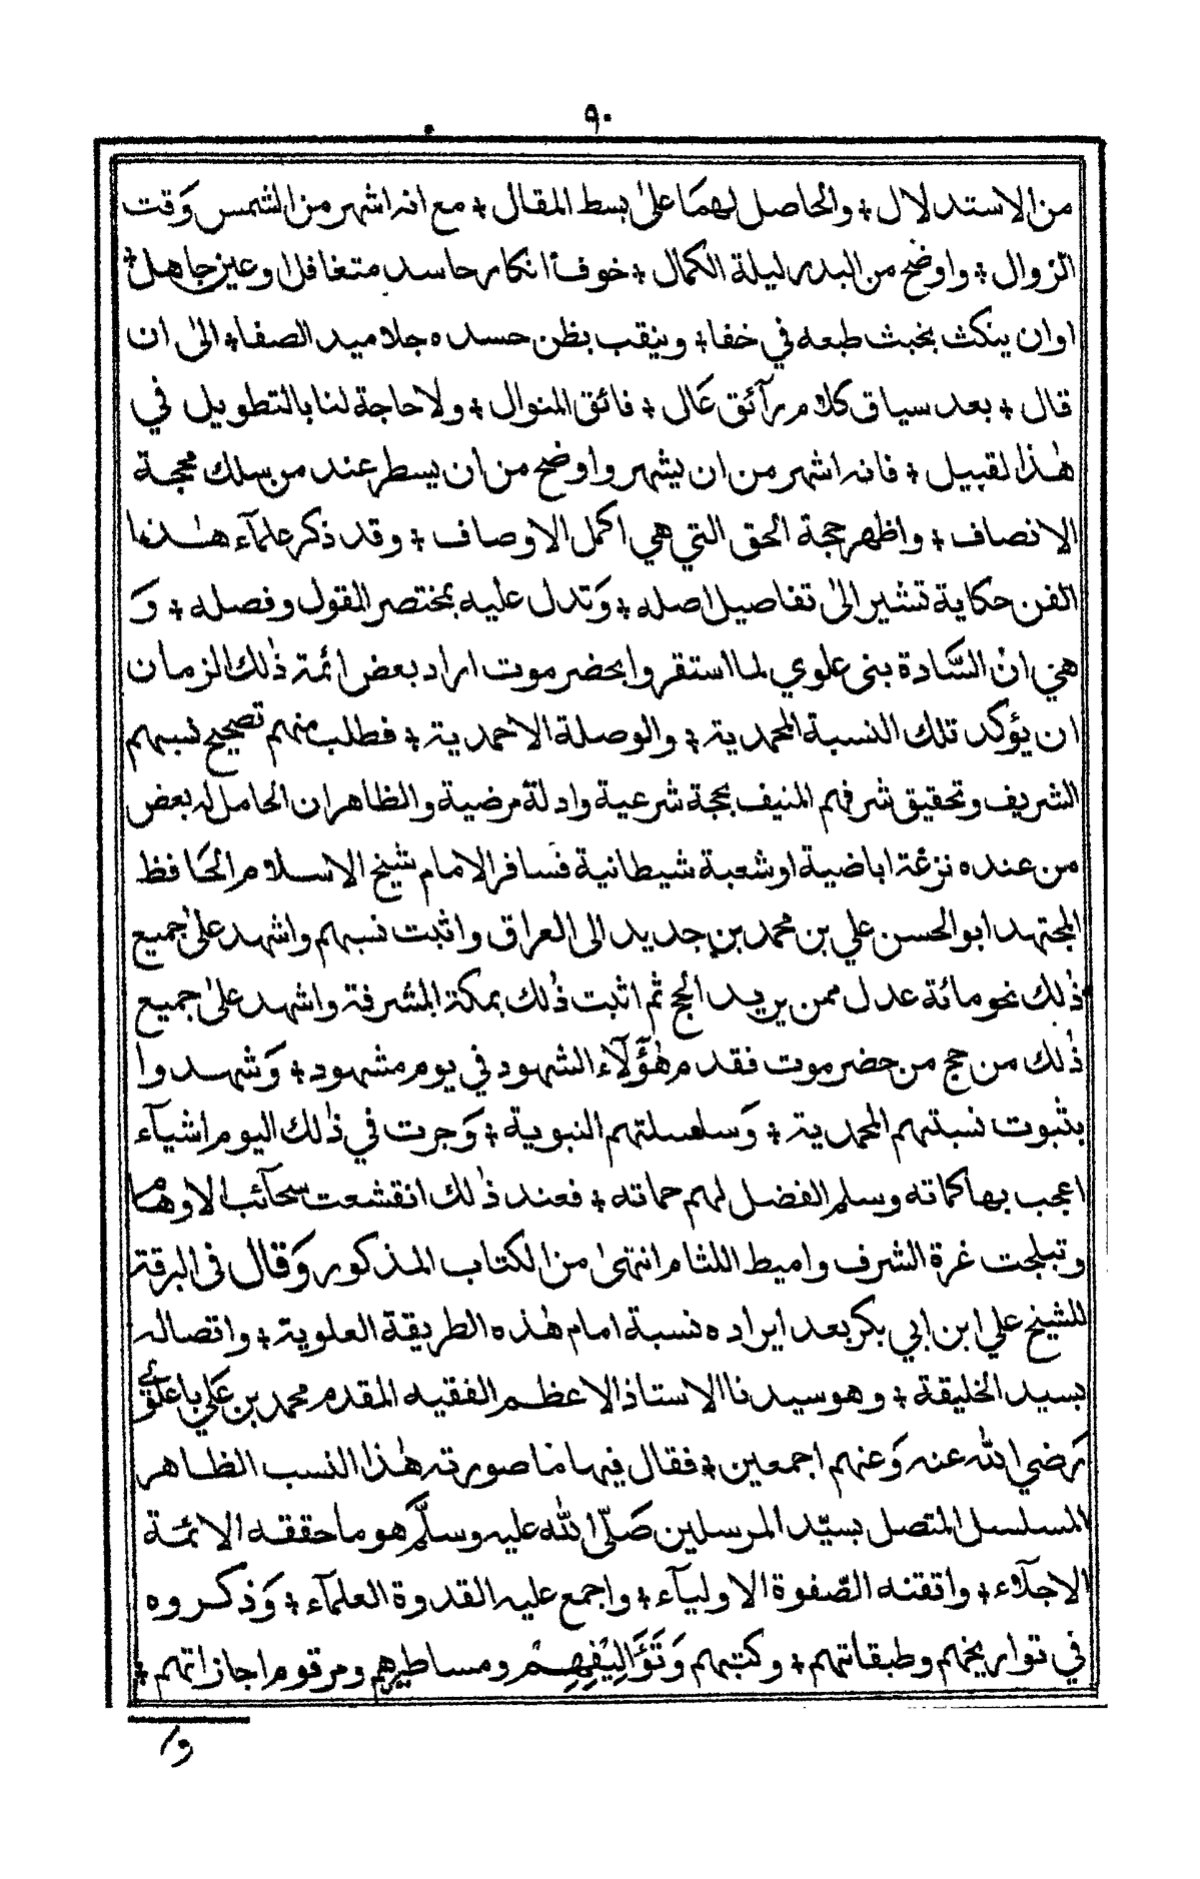 ٩٠
من الاستدلال ✦ والحاصل لهما على بسط المقال ✦ مع انه اشهر من الشمس وَقت
الزوال ✦ واوضح من البدر ليلة الكمال ✦ خوف انكار حاسد متغافل او عيز جاهل ✦
اوان ينكث بخبث طبعه في خفا ✦ وينقب بظن حسده جلاميد الصفا ✦ الىٰ ان
قال ✦ بعد سياق كلام رآئق عَال ✦ فائق المنوال ✦ ولا حاجة لنا بالتطويل في
هٰذا لقبيل ✦ فانه اشهر من ان يشهر واوضح من ان يسطر عند من سلك محجة
الانصاف ✦ واظهر حجة الحق التي هي اكمل الاوصاف ✦ وقد ذكر علمآء هٰذا
الفن حكاية تشير الىٰ تفاصيل اصله ✦ وَتدل عليه بمختصر القول وفصله ✦ وَ
هي انْ السَّادة بنى علوي لما استقروا بحضرموت اراد بعض ائمة ذٰلك الزمان
ان يؤكد تلك النسبة المحمدية ✦ والوصلة الاحمدية ✦ فطلب منهم تصحيح نسبهم
الشريف وتحقيق شرفهم المنيف بحجة شرعية وادلة مرضية والظاهر ان الحامل له بعض
من عنده نزغة اباضية او شعبة شيطانية فسافر الامام شيخ الاسلام الحَافظ
المجتهد ابو الحسن علي بن محمد بن جديد الى العراق واثبت نسبهم واشهد علىٰ جميع
ذٰلك نحو مائة عدل ممن يريد الحج ثم اثبت ذٰلك بمكة المشرفة واشهد علىٰ جميع
ذٰلك من حج من حضرموت فقدم هٰؤلآء الشهود في يوم مشهود ✦ وَشهدوا
بثبوت نسبتهم المحمدية ✦ وَسلسلتهم النبوية ✦ وَجرت في ذٰلك اليوم اشيآء
اعجب بها كماته وسلم الفضل لهم حماته ✦ فعند ذٰلك انقشعت سحآئب الاوهام
وتبلجت غرة الشرف واميط اللثام انتهىٰ من الكتاب المذكور وَقال فى البرقة
للشيخ علي ابن ابي بكر بعد ايراده نسبة امام هٰذه الطريقة العلوية ✦ واتصاله
بسيد الخليقة ✦ وهو سيدنا الاستاذ الاعظم الفقيه المقدم محمد بن عَلي باعلوي
رَضي الله عنه وَعنهم اجمعين ✦ فقال فيها مَا صورته هٰذا النسب الظاهر
المسلسل المتصل بسيّد المرسلين صَلّى الله عليه وسلّم هو ما حققه الائمة
الاجلآء ✦ واتقنه الصّفوة الاوليآء ✦ واجمع عليه القدوة العلمآء ✦ وَذكروه
في تواريخهم وطبقاتهم ✦ وكتبهم وَتَؤَالِيْفِهِمْ ومساطيرهم ومرقوم اجازاتهم ✦
و/